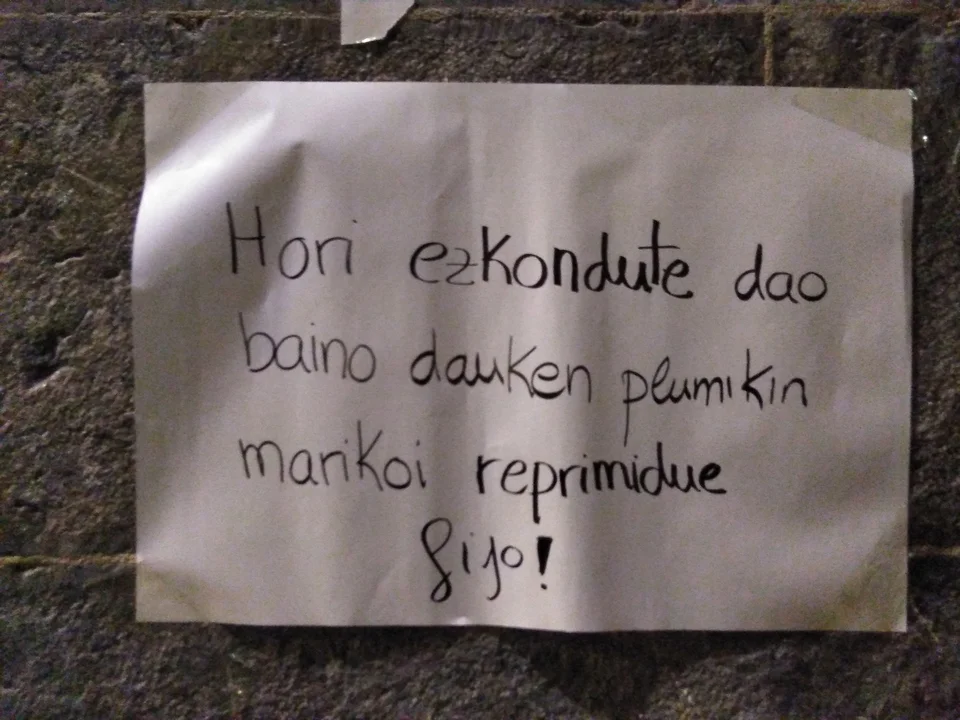 Hori ezkondute dao
baino dauken plumikin
marikoi reprimidue
fijo!